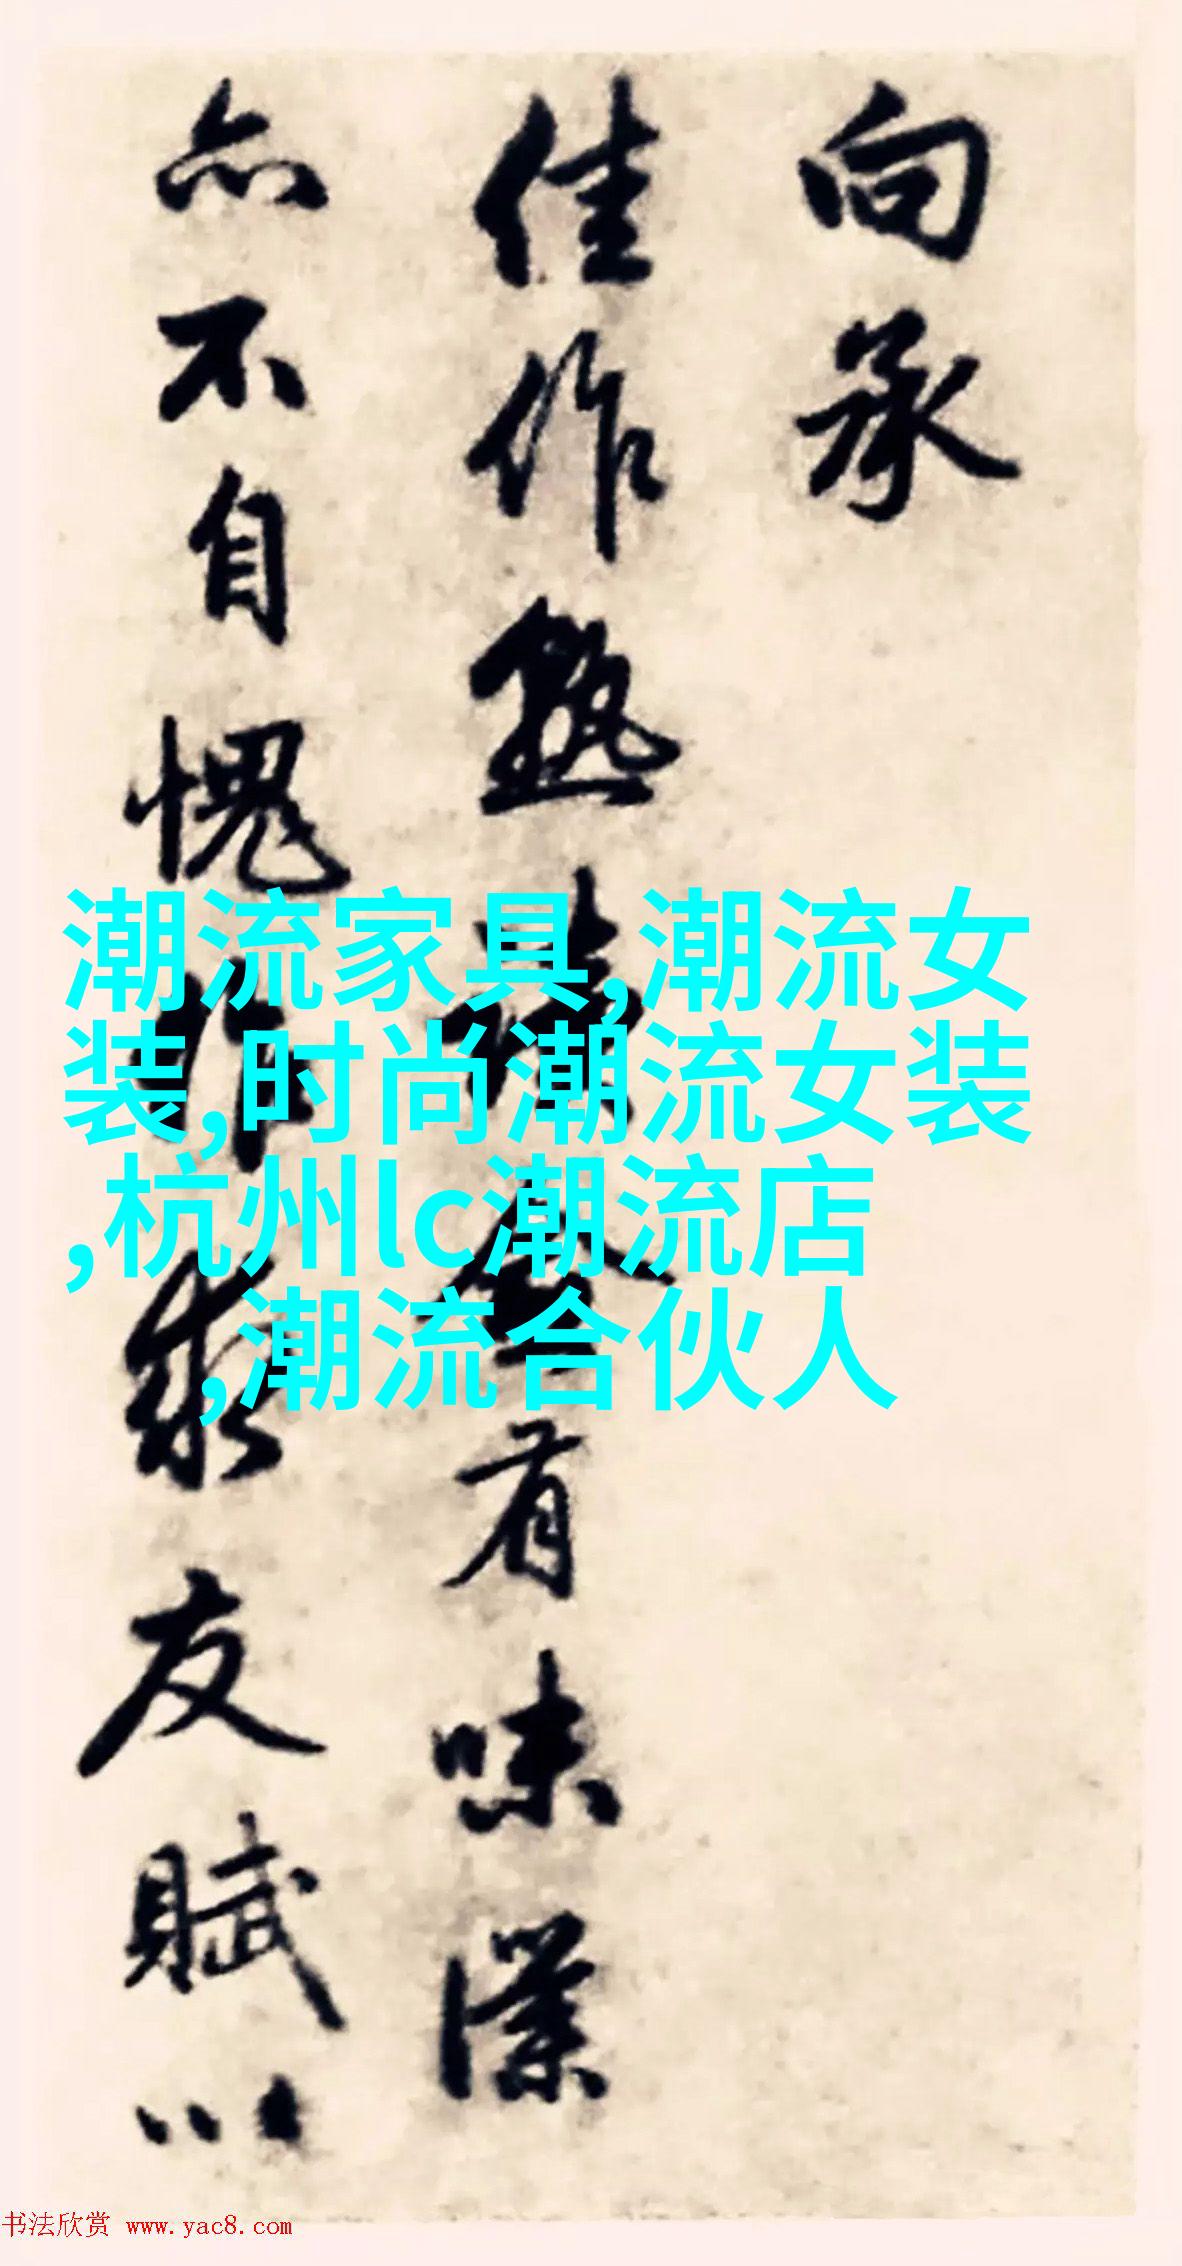 向承
佳作熟读余有味深
亦不自愧作求友赋以
潮流家具,潮流女
装,时尚潮流女装
,杭州lc潮流店
,潮流合伙人
书法欣赏 www.yac8.com